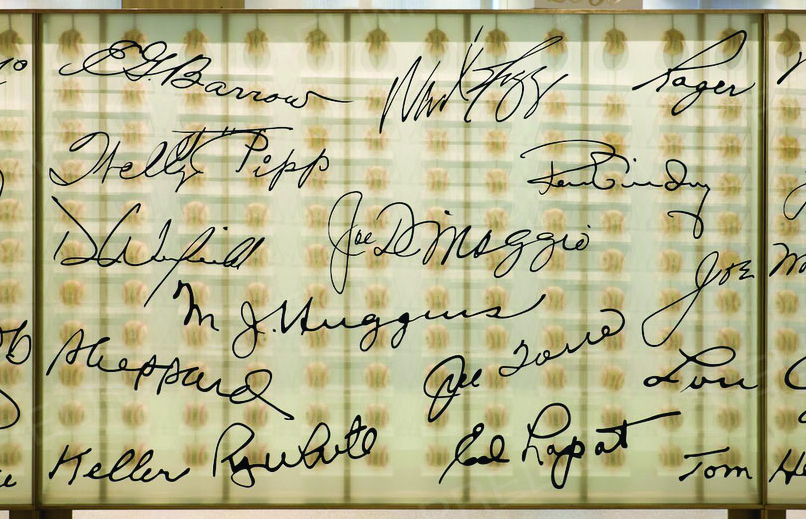 E.G. Barrow Roger
Wally Pipp
D Winfield Joe DiMaggio Joe
M. J. Huggins
Sheppard Joe Torre Lou
Keller Roy White Ed Lopat Tom He